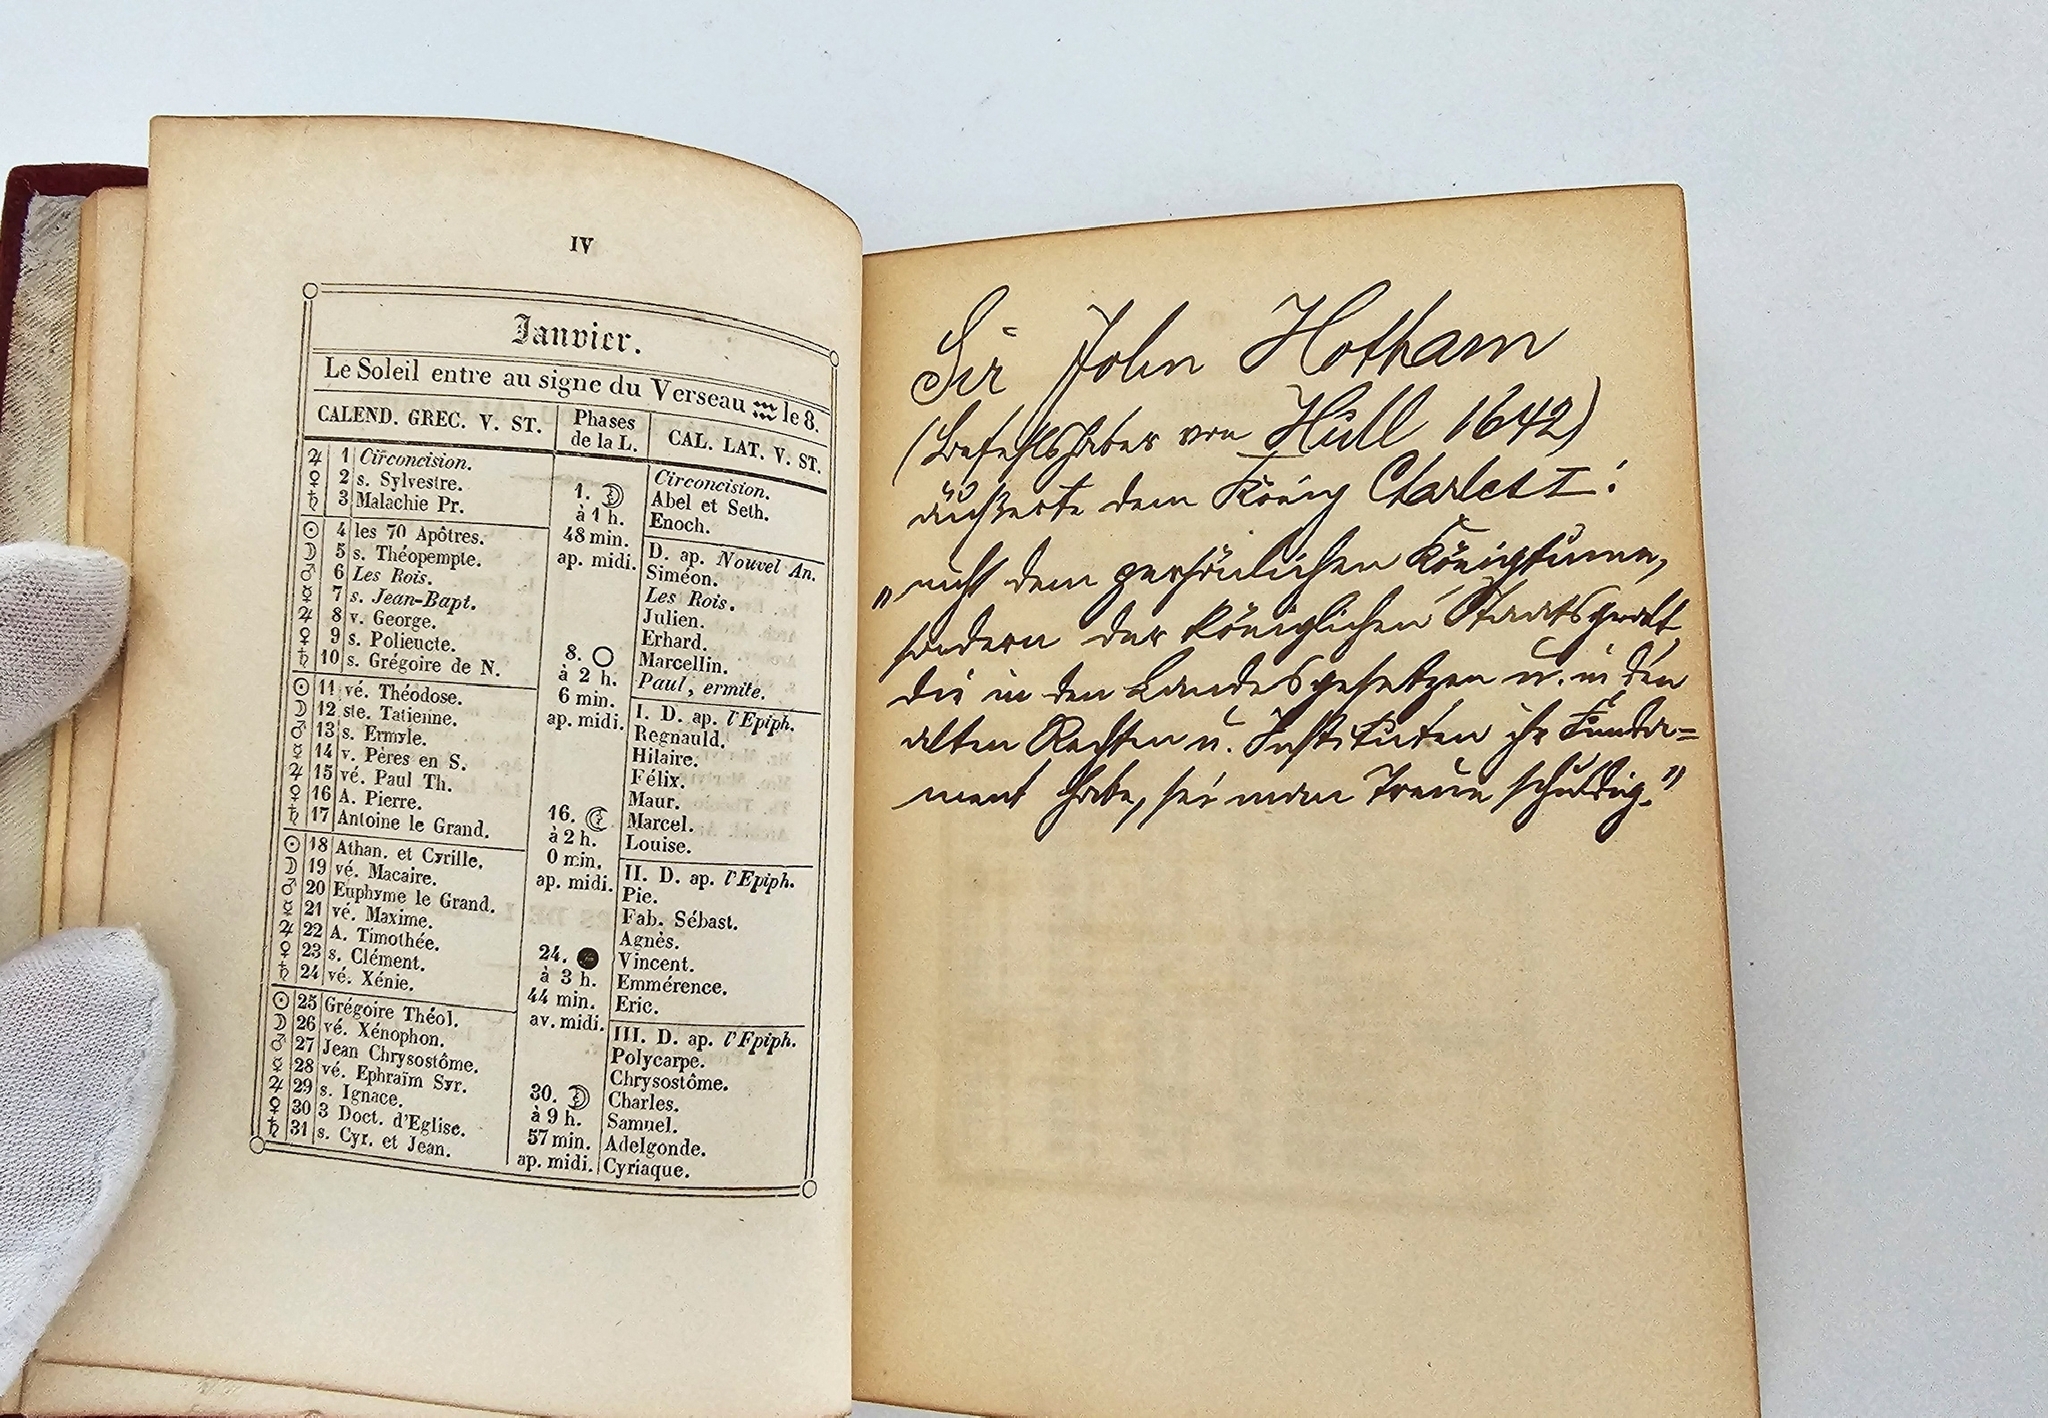 IV
Janvier.
Le Soleil entre au signe du Verseau ♒ le 8.
CALEND. GREC. V. ST.
Phases
de la L.
CAL. LAT. V. ST.
♃ 1 Circoncision.
♀ 2 s. Sylvestre.
♄ 3 Malachie Pr.
☉ 4 les 70 Apôtres.
☽ 5 s. Théopempte.
♂ 6 Les Rois.
☿ 7 s. Jean-Bapt.
♃ 8 v. George.
♀ 9 s. Polieucte.
♄ 10 s. Grégoire de N.
☉ 11 vé. Théodose.
☽ 12 ste. Tatienne.
♂ 13 s. Ermyle.
☿ 14 v. Pères en S.
♃ 15 vé. Paul Th.
♀ 16 A. Pierre.
♄ 17 Antoine le Grand.
☉ 18 Athan. et Cyrille.
☽ 19 vé. Macaire.
♂ 20 Euphyme le Grand.
☿ 21 vé. Maxime.
♃ 22 A. Timothée.
♀ 23 s. Clément.
♄ 24 vé. Xénie.
☉ 25 Grégoire Théol.
☽ 26 vé. Xénophon.
♂ 27 Jean Chrysostôme.
☿ 28 vé. Ephraïm Syr.
♃ 29 s. Ignace.
♀ 30 3 Doct. d'Eglise.
♄ 31 s. Cyr. et Jean.
1. ☽
à 1 h.
48 min.
ap. midi.
8. ○
à 2 h.
6 min.
ap. midi.
16. ☾
à 2 h.
0 min.
ap. midi.
24. ●
à 3 h.
44 min.
av. midi.
30. ☽
à 9 h.
57 min.
ap. midi.
Circoncision.
Abel et Seth.
Enoch.
D. ap. Nouvel An.
Siméon.
Les Rois.
Julien.
Erhard.
Marcellin.
Paul, ermite.
I. D. ap. l'Epiph.
Regnauld.
Hilaire.
Félix.
Maur.
Marcel.
Louise.
II. D. ap. l'Epiph.
Pie.
Fab. Sébast.
Agnès.
Vincent.
Emmérence.
Eric.
III. D. ap. l'Epiph.
Polycarpe.
Chrysostôme.
Charles.
Samuel.
Adelgonde.
Cyriaque.
Sir John Hotham
(Befehlshaber von Hull 1642)
äußerte dem König Charles I:
„nicht dem persönlichen Königthume,
sondern der königlichen Staatsgewalt,
die in den Landesgesetzen u. in den
alten Rechten u. Instituten ihr Funda=
ment habe, sei man Treue schuldig."